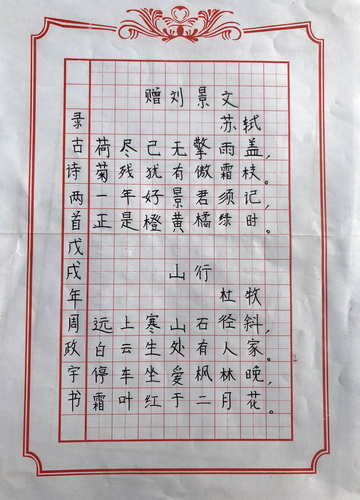 赠刘景文
苏轼
荷尽已无擎雨盖,
菊残犹有傲霜枝。
一年好景君须记,
正是橙黄橘绿时。
山行
杜牧
远上寒山石径斜,
白云生处有人家。
停车坐爱枫林晚,
霜叶红于二月花。
录古诗两首戊戌年周政宇书